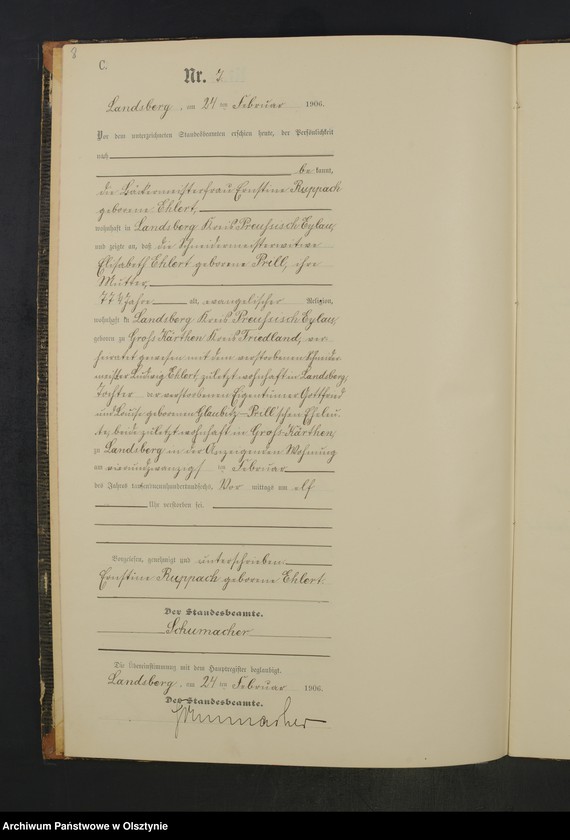 8
C.
Nr. 7.
Landsberg, am 24 ten Februar 1906.
Vor dem unterzeichneten Standesbeamten erschien heute, der Persönlichkeit
nach
be kannt,
die Bäckermeisterfrau Ernstine Ruppach
geborene Ehlert,
wohnhaft in Landsberg Kreis Preußisch Eylau,
und zeigte an, daß die Schneidermeisterwitwe
Elisabeth Ehlert geborene Prill, ihre
Mutter,
77 ½ Jahre alt, evangelischer Religion,
wohnhaft in Landsberg Kreis Preußisch Eylau
geboren zu Groß Kärthen Kreis Friedland, ver-
heiratet gewesen mit dem verstorbenen Schneider
meister Ludwig Ehlert, zuletzt wohnhaft in Landsberg,
Tochter er verstorbenen Eigentümer Gottfried
und Louise geborenen Glaubitz-Prill'schen Eheleu
te, beide zuletzt wohnhaft in Groß-Kärthen,
zu Landsberg in der Anzeigenden Wohnung
am vierundzwanzigsten Februar
des Jahres tausendneunhundertundsechs, Vor mittags um elf
Uhr verstorben sei.
Vorgelesen, genehmigt und unterschrieben
Ernstine Ruppach geborene Ehlert.
Der Standesbeamte.
Schumacher
Die Übereinstimmung mit dem Hauptregister beglaubigt.
Landsberg, am 24 ten Februar 1906.
Der Standesbeamte.
Schumacher
Archiwum Państwowe w Olsztynie